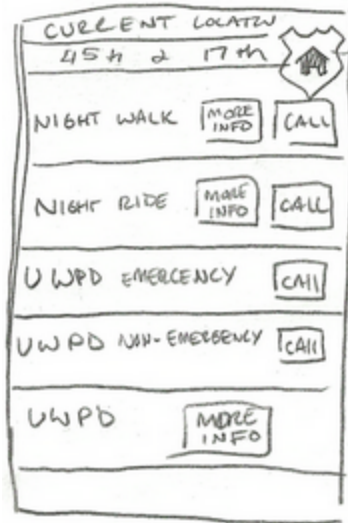 CURRENT LOCATION
45th & 17th
NIGHT WALK MORE INFO CALL
NIGHT RIDE MORE INFO CALL
UWPD EMERGENCY CALL
UWPD NON-EMERGENCY CALL
UWPD MORE INFO